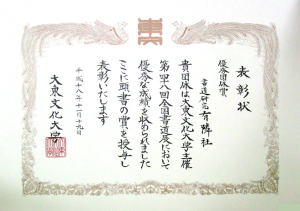 表彰状
優秀団体賞
書道研究 有隣社
貴団体は大東文化大学主催
第四十八回全国書道展において
優秀な成績を収められました
ここに頭書の賞を授与し
表彰いたします
平成十八年十一月十九日
大東文化大学